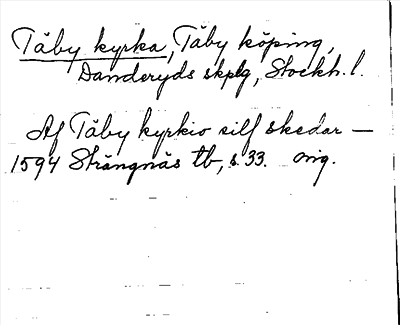 Täby kyrka, Täby köping,
Danderyds skplg, Stockh. l.
Af Täby kyrkio silf skedar —
1594 Strängnäs tb, s 33. orig.